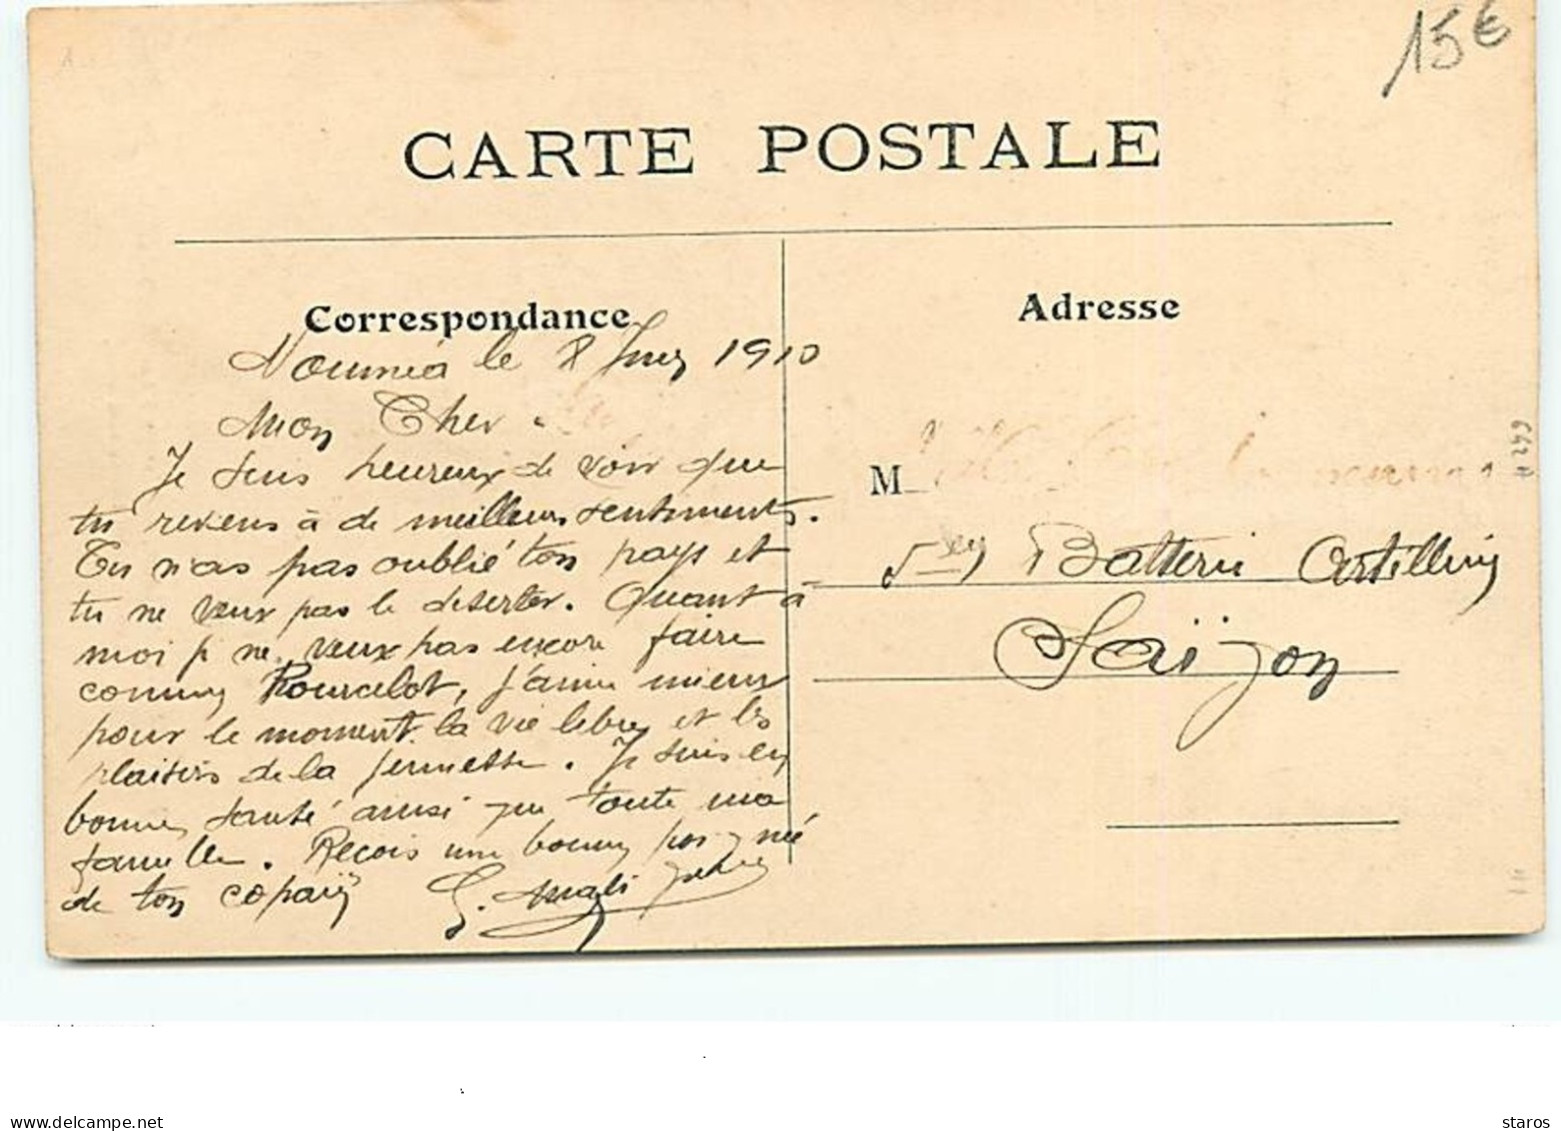 15€
CARTE POSTALE
Correspondance
Adresse
Nouméa le 8 Juin 1910
Mon Cher
Je suis heureux de voir que
tu reviens à de meilleurs sentiments.
Tu n'as pas oublié ton pays et
tu ne veux pas le deserter. Quant à
moi je ne veux pas encore faire
comme Rourcelot, j'aime mieux
pour le moment la vie libre et les
plaisirs de la jeunesse. Je suis en
bonne santé ainsi que toute ma
famille. Reçois une bonne poignée
de ton copain G.
M
5ème Batterie Artillerie
Saïgon
www.delcampe.net
staros